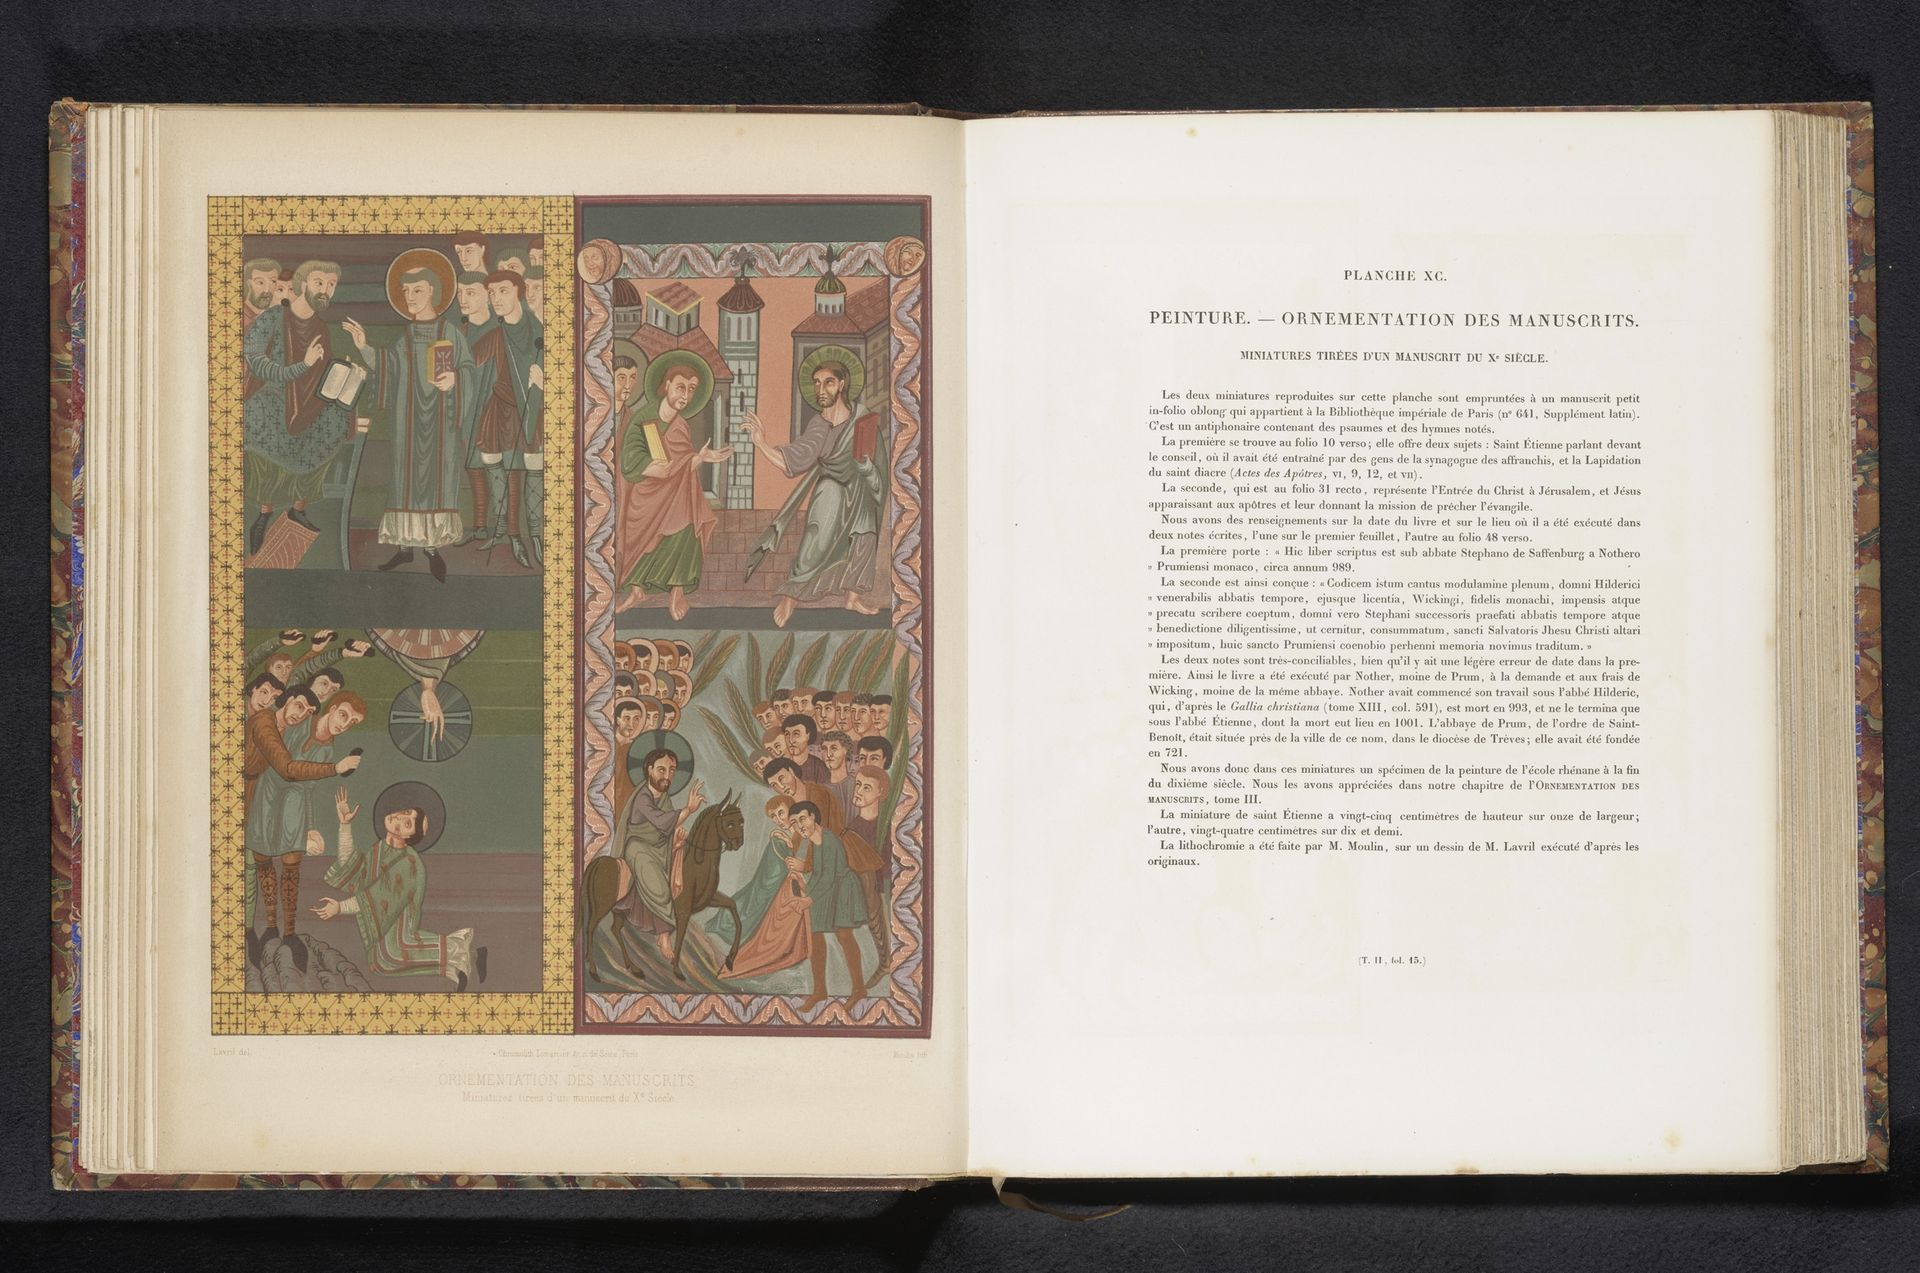 Lavril del.
Chromolith. Lemercier, r. de Seine, Paris
Moulin lith.
ORNEMENTATION DES MANUSCRITS
Miniatures tirées d'un manuscrit du Xe Siècle.
PLANCHE XC.
PEINTURE. — ORNEMENTATION DES MANUSCRITS.
MINIATURES TIRÉES D'UN MANUSCRIT DU Xe SIÈCLE.
Les deux miniatures reproduites sur cette planche sont empruntées à un manuscrit petit
in-folio oblong qui appartient à la Bibliothèque impériale de Paris (no 641, Supplément latin).
C'est un antiphonaire contenant des psaumes et des hymnes notés.
La première se trouve au folio 10 verso; elle offre deux sujets : Saint Étienne parlant devant
le conseil, où il avait été entraîné par des gens de la synagogue des affranchis, et la Lapidation
du saint diacre (Actes des Apôtres, VI, 9, 12, et VII).
La seconde, qui est au folio 31 recto, représente l'Entrée du Christ à Jérusalem, et Jésus
apparaissant aux apôtres et leur donnant la mission de prêcher l'évangile.
Nous avons des renseignements sur la date du livre et sur le lieu où il a été exécuté dans
deux notes écrites, l'une sur le premier feuillet, l'autre au folio 48 verso.
La première porte : « Hic liber scriptus est sub abbate Stephano de Saffenburg a Nothero
» Prumiensi monaco, circa annum 989.
La seconde est ainsi conçue : « Codicem istum cantus modulamine plenum, domni Hilderici
» venerabilis abbatis tempore, ejusque licentia, Wickingi, fidelis monachi, impensis atque
» precatu scribere coeptum, domni vero Stephani successoris praefati abbatis tempore atque
» benedictione diligentissime, ut cernitur, consummatum, sancti Salvatoris Jhesu Christi altari
» impositum, huic sancto Prumiensi coenobio perhenni memoria novimus traditum. »
Les deux notes sont très-conciliables, bien qu'il y ait une légère erreur de date dans la pre-
mière. Ainsi le livre a été exécuté par Nother, moine de Prum, à la demande et aux frais de
Wicking, moine de la même abbaye. Nother avait commencé son travail sous l'abbé Hilderic,
qui, d'après le Gallia christiana (tome XIII, col. 591), est mort en 993, et ne le termina que
sous l'abbé Étienne, dont la mort eut lieu en 1001. L'abbaye de Prum, de l'ordre de Saint-
Benoît, était située près de la ville de ce nom, dans le diocèse de Trèves; elle avait été fondée
en 721.
Nous avons donc dans ces miniatures un spécimen de la peinture de l'école rhénane à la fin
du dixième siècle. Nous les avons appréciées dans notre chapitre de l'ORNEMENTATION DES
MANUSCRITS, tome III.
La miniature de saint Étienne a vingt-cinq centimètres de hauteur sur onze de largeur;
l'autre, vingt-quatre centimètres sur dix et demi.
La lithochromie a été faite par M. Moulin, sur un dessin de M. Lavril exécuté d'après les
originaux.
(T. II, fol. 15.)